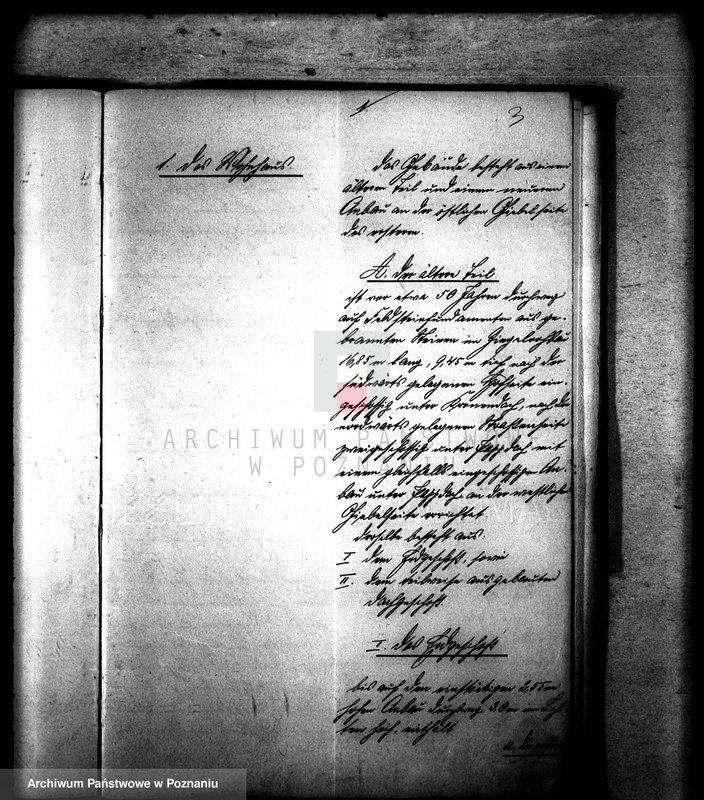 3
1. Das Wohnhaus.
Das Gebäude besteht aus einem
älteren Teil und einem neueren
Anbau an der östlichen Giebelseite
des ersteren.
A. Der ältere Teil
ist vor etwa 50 Jahren durchweg
auf Feldsteinfundamenten aus ge-
brannten Steinen im Ziegelrohbau
16,85 m lang, 9,45 m tief nach der
südwärts gelegenen Hofseite ein-
geschossig unter Kronendach, nach der
nordwärts gelegenen Straßenseite
zweigeschossig unter Pappdach mit
einem gleichfalls eingeschossigen An-
bau unter Pappdach an der westlichen
Giebelseite errichtet.
Derselbe besteht aus:
I dem Erdgeschoß, sowie
II. dem teilweise ausgebauten
Dachgeschoß.
I. Das Erdgeschoß
bis auf den 2,85 m
hohen Anbau durchweg 3,0 m im Lich-
ten hoch, enthält
ARCHIWUM PAŃSTWOWE
W POZNANIU
Archiwum Państwowe w Poznaniu